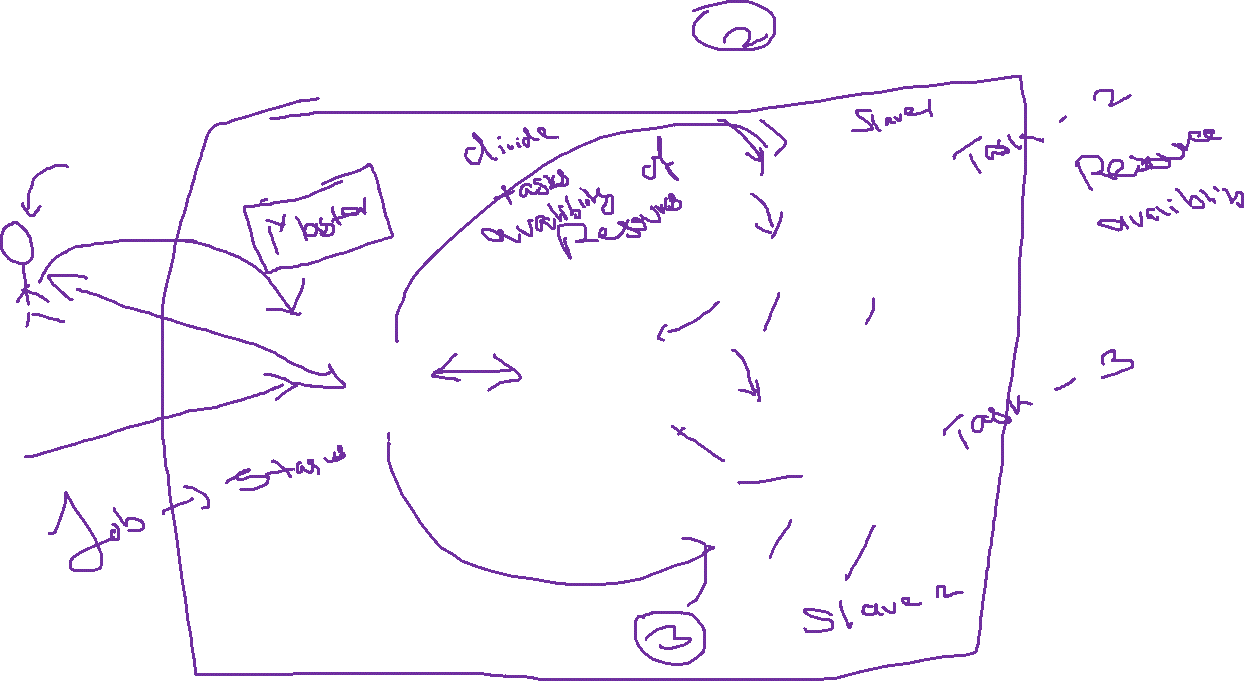 2
Slave1
divide
tasks
availibility of
Resours
Master
Task - 2
Resource
availiblity
Task - 3
Job → status
Slave 2
3